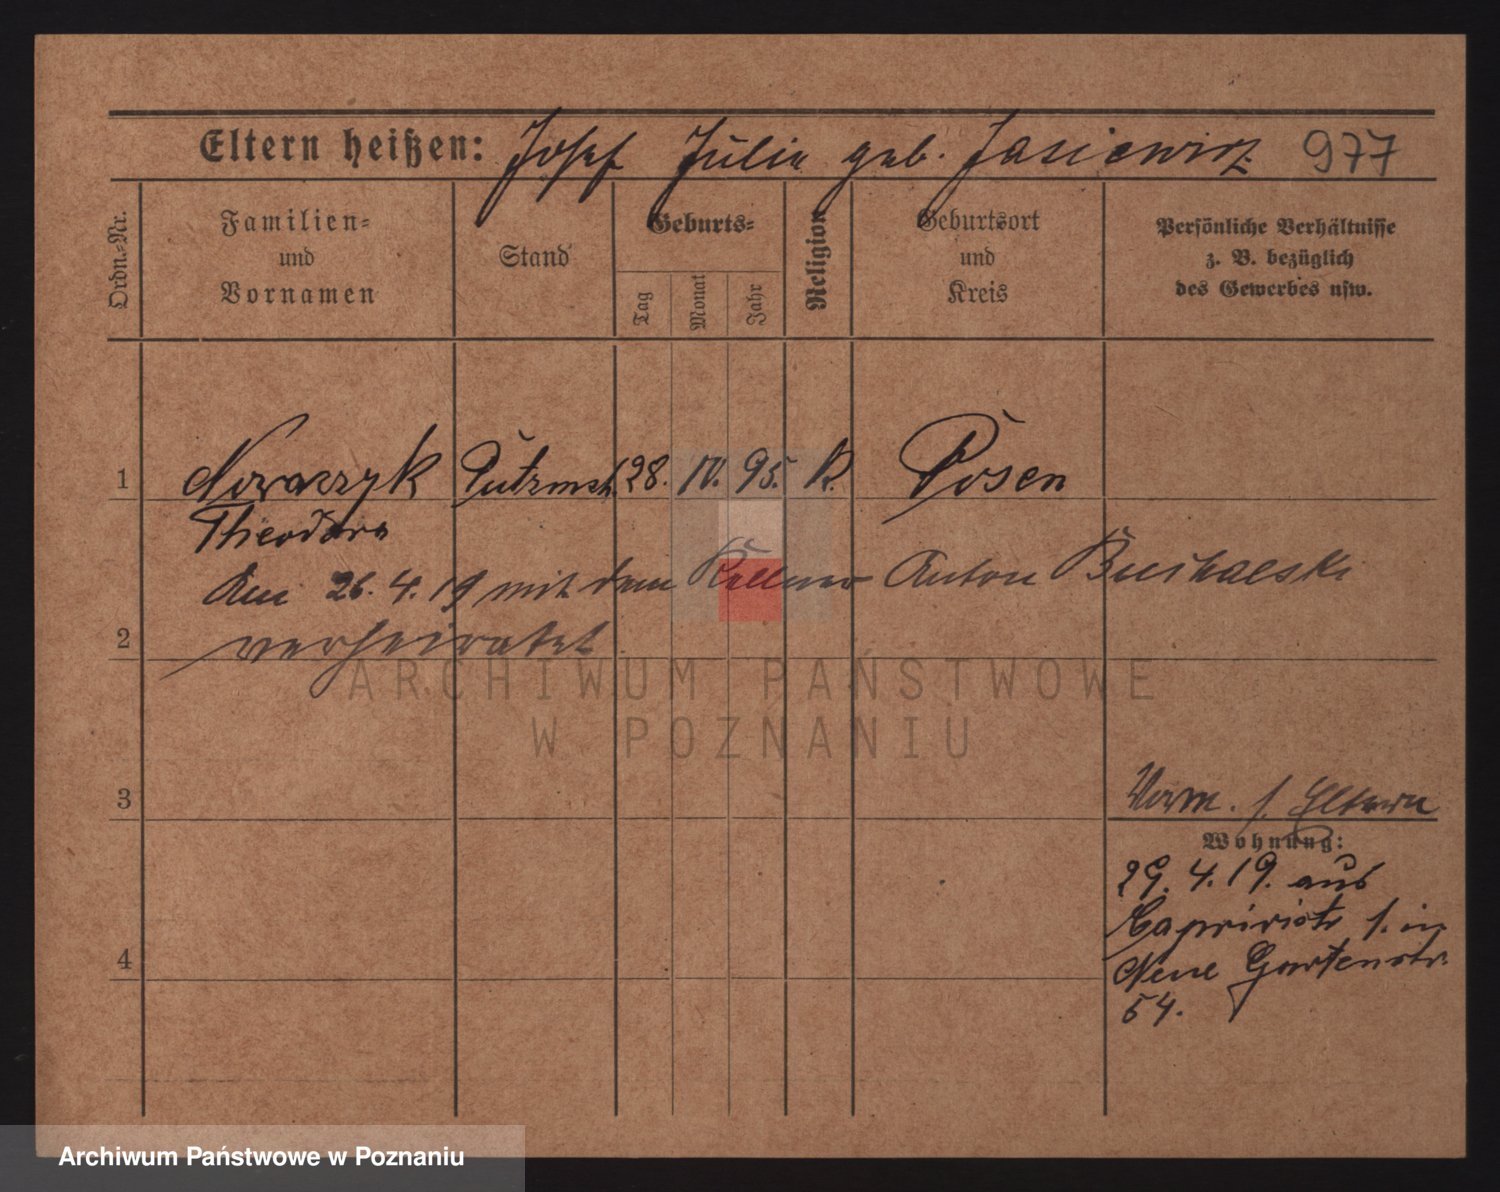 Eltern heißen: Josef Julia geb. Jasiewicz 977
Ordn.-Nr.
Familien-
und
Vornamen
Stand
Geburts-
Tag
Monat
Jahr
Religion
Geburtsort
und
Kreis
Persönliche Verhältnisse
z. B. bezüglich
des Gewerbes usw.
1 Nowaczyk Putzmch. 28. IV. 95. K. Posen
Theodora
Am 26. 4. 19 mit dem Kellner Anton
2 verheiratet
ARCHIWUM PAŃSTWOWE
W POZNANIU
3 Verm. s. Eltern
Wohnung:
29. 4. 19. aus
Caprivistr 1. in
4 Neue Gartenstr.
54.
Archiwum Państwowe w Poznaniu